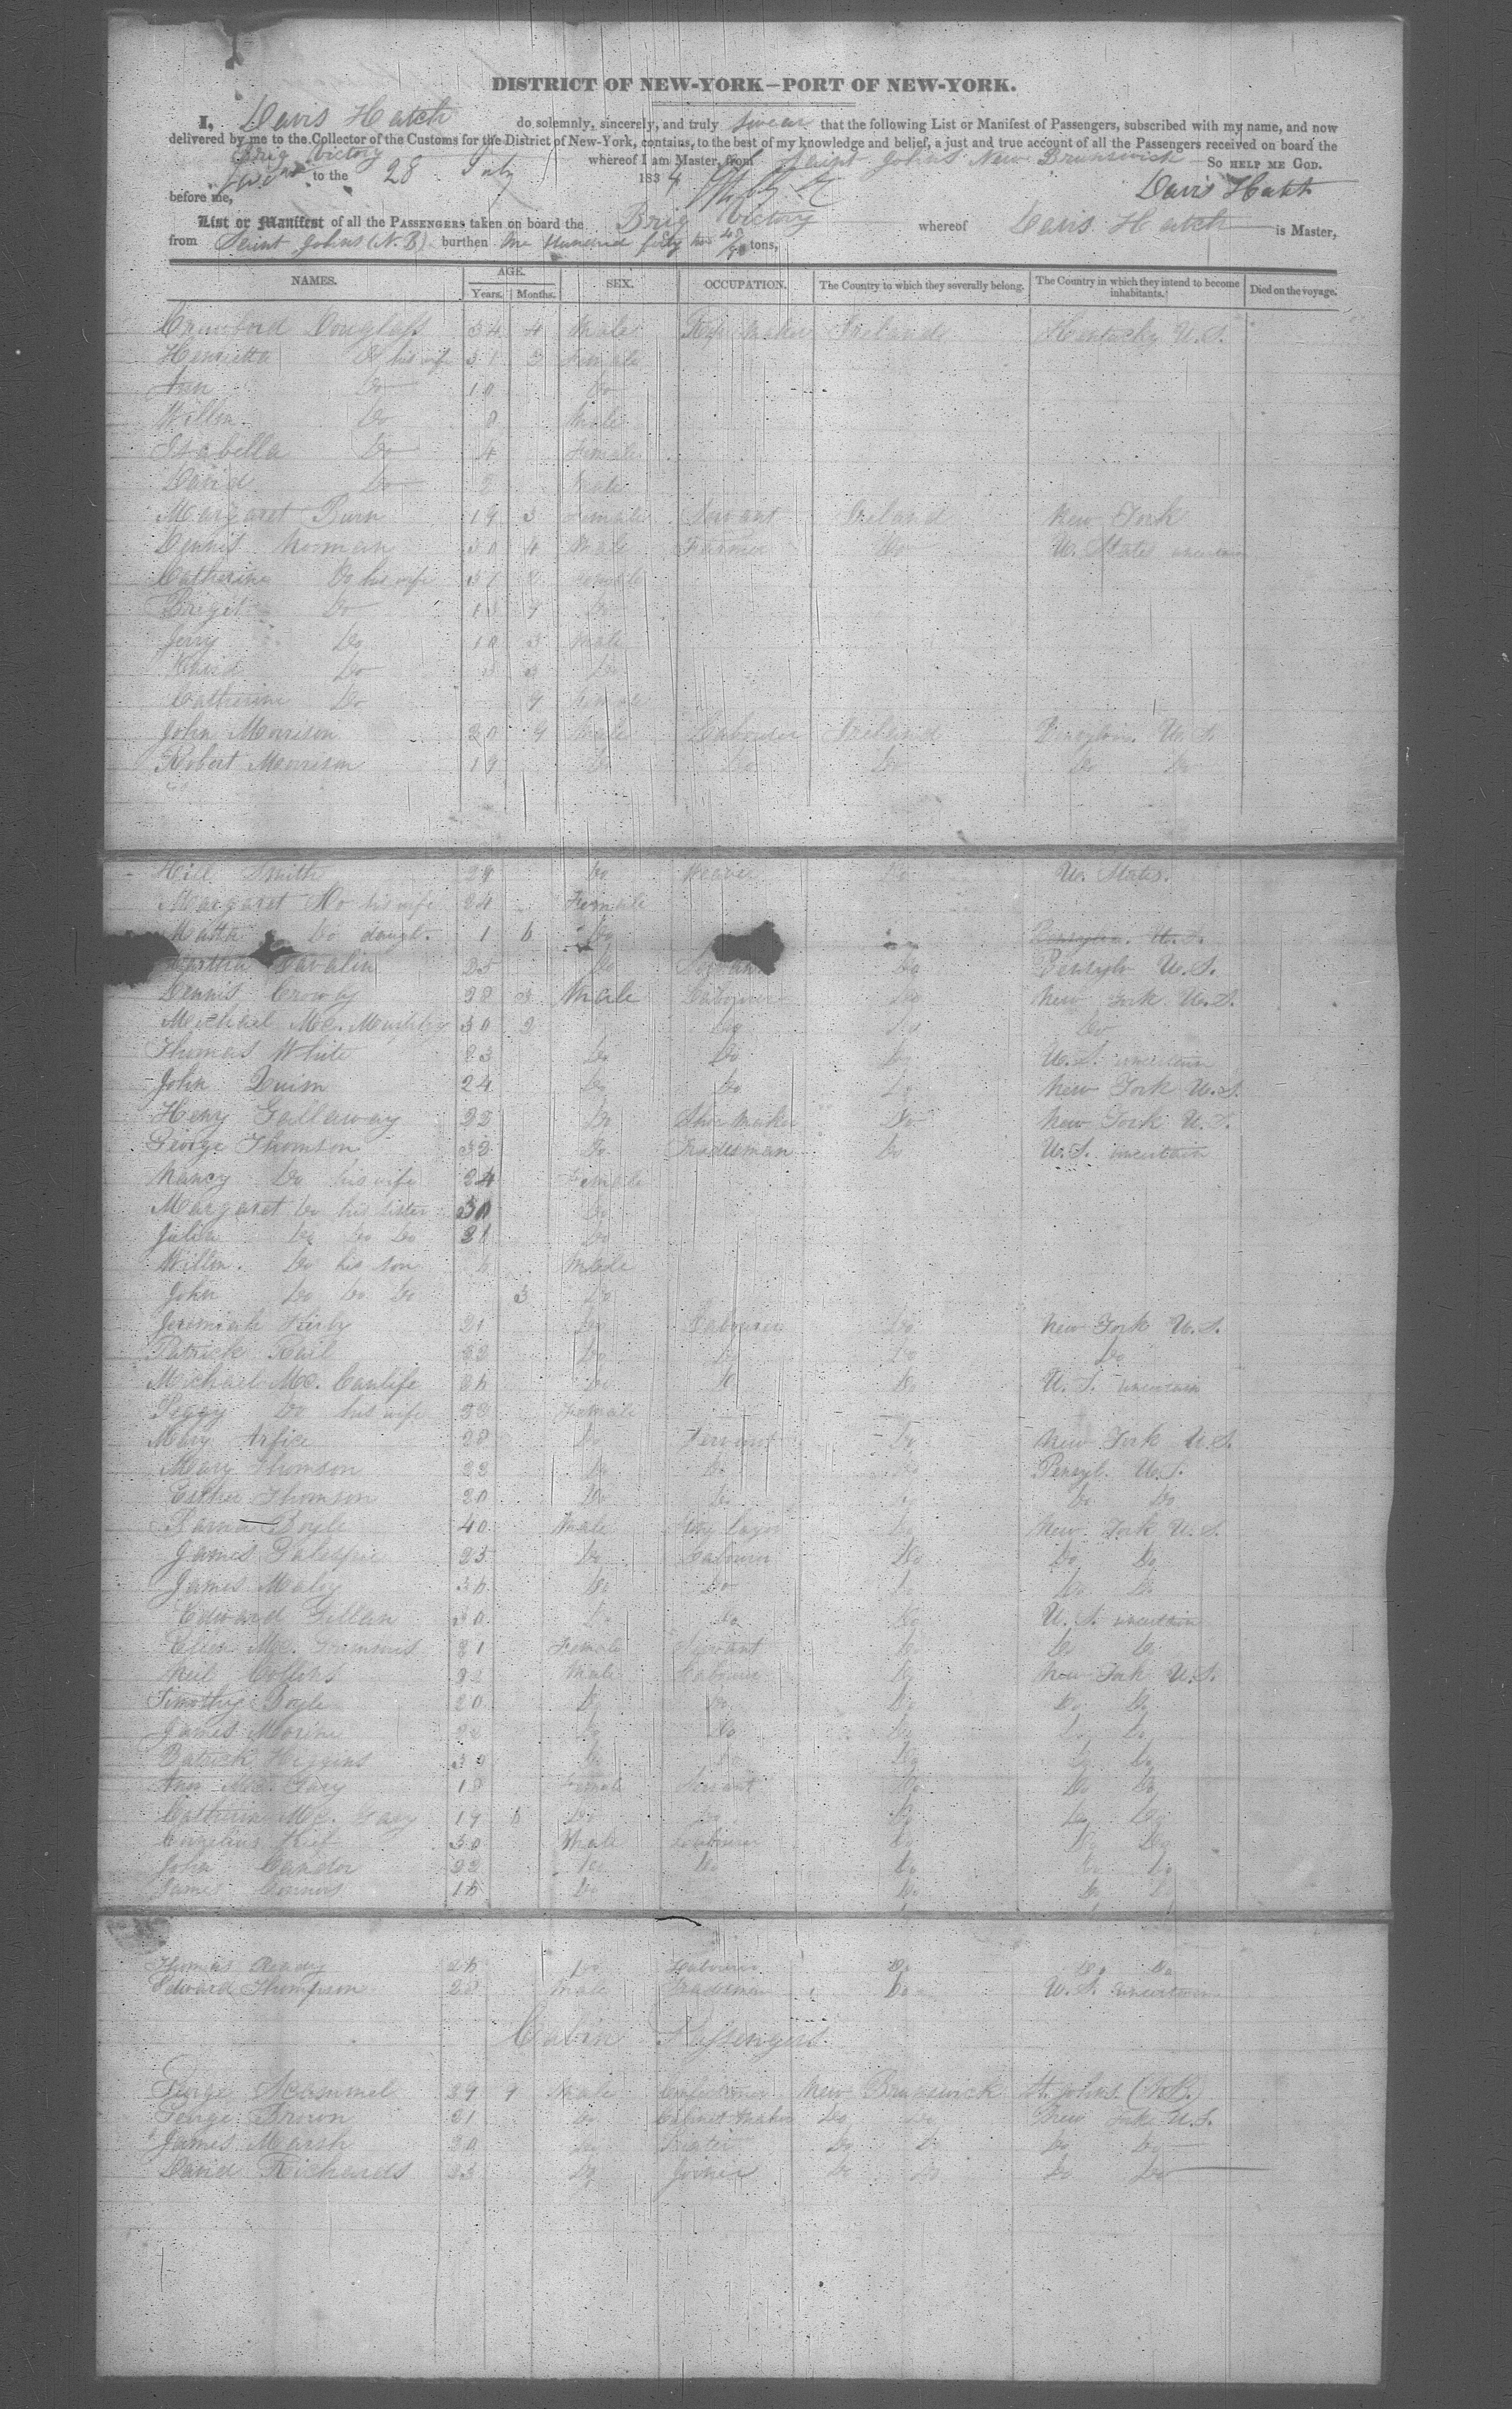 DISTRICT OF NEW-YORK—PORT OF NEW-YORK.
I, Davis Hatch do solemnly, sincerely, and truly swear that the following List or Manifest of Passengers, subscribed with my name, and now
delivered by me to the Collector of the Customs for the District of New-York, contains, to the best of my knowledge and belief, a just and true account of all the Passengers received on board the
Brig Victory whereof I am Master, from Saint Johns New Brunswick So HELP ME GOD.
to the 28 July 1834
before me, Davis Hatch
List or Manifest of all the PASSENGERS taken on board the Brig Victory whereof Davis Hatch is Master,
from Saint Johns (N.B) burthen One Hundred fifty two tons,
NAMES. AGE. Years. Months. SEX. OCCUPATION. The Country to which they severally belong. The Country in which they intend to become inhabitants. Died on the voyage.
Crawford Douglass 34 4 Male Maker Ireland Kentucky U.S.
Henrietta Do his wife 31 3 Female
Ann Do 10 Do
Willm. Do 8 Male
Isabella Do 4 Female
David Do 2 Male
Margaret Burn 19 3 Female Servant Ireland New York
Dennis Norman 30 4 Male Farmer Do U. States uncertain
Catherine Do his wife 31 2 Female
Brigit Do 13 9 Do
Jerry Do 10 3 Male
Do 3 3 Do
Catherine Do 9 Female
John Morrison 20 9 Male Labourer Ireland U.S.
Robert Morrison 19 Do Do Do Do Do
Smith 29 Do Weaver Do U. States.
Margaret Do his wife 24 Female
Do daught. 1 6 Do
Martha 25 Do Servant Do Pensylv U.S.
Dennis Crowly 28 3 Male Labourer Do New York U.S.
Michael Mc. 30 2 Do Do Do
Thomas White 23 Do Do Do U.S. uncertain
John Quinn 24 Do Do Do New York U.S.
Henry Gallaway 22 Do Shoe Maker Do New York U.S.
George Thomson 33 Do Tradesman Do U.S. uncertain
Nancy Do his wife 24 Female
Margaret Do his sister 30 Do
Julia Do Do Do 21 Do
Willm. Do his son 6 Male
John Do Do Do 3 Do
Jeremiah Kirby 21 Do Labourer Do New York U.S.
Patrick 22 Do Do Do Do
Michael Mc. Canlife 26 Do Do Do U.S. uncertain
Peggy Do his wife 22 Female
Mary 20 Do Servant Do New York U.S.
Mary Thomson 22 Do Do Do Pensyl. U.S.
Esther Thomson 20 Do Do Do Do Do
Boyle 40 Male Do New York U.S.
James Galespie 25 Do Labourer Do Do Do
James Maloy 36 Do Do Do Do Do
Edward Gillan 30 Do Do Do U.S. uncertain
Ellen Mc. 21 Female Servant Do Do Do
Neil Collins 22 Male Labourer Do New York U.S.
Timothy Boyle 20 Do Do Do Do Do
James Morine 22 Do Do Do Do Do
Patrick Higgins 30 Do Do Do Do Do
Ann Mc. Gary 18 Female Servant Do Do Do
Catherine Mc. Gary 19 6 Do Do Do Do Do
Cornelius Kief 30 Male Labourer Do Do Do
John Candor 22 Do Do Do Do Do
James Connors 16 Do Do Do Do
Thomas Ready 26 Do Labourer Do Do Do
Edward Thompson 20 Male Tradesman Do U.S. uncertain
Cabin Passengers
George Scammel 29 9 Male New Brunswick St. Johns (N.B.)
George Brown 21 Do Cabinet Maker Do Do New York U.S.
James Marsh 20 Do Do Do Do Do
David Richards 23 Do Joiner Do Do Do Do